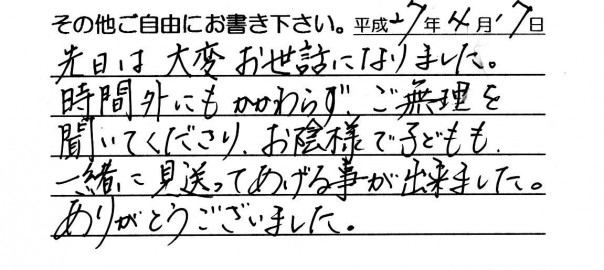 その他ご自由にお書き下さい。平成27年4月17日
先日は大変お世話になりました。
時間外にもかかわらず、ご無理を
聞いてくださり、お陰様で子どもも、
一緒に見送ってあげる事が出来ました。
ありがとうございました。